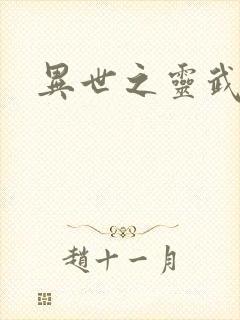 異世之靈武
趙十一月